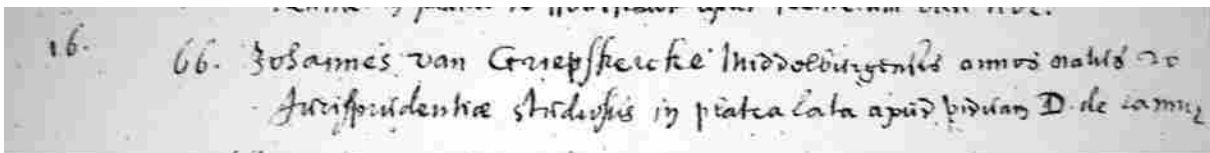 16. 66. Johannes van Griepskercke Middelburgensis annos natus 20
Jurisprudentiæ studiosus in platea lata apud viduam D. de